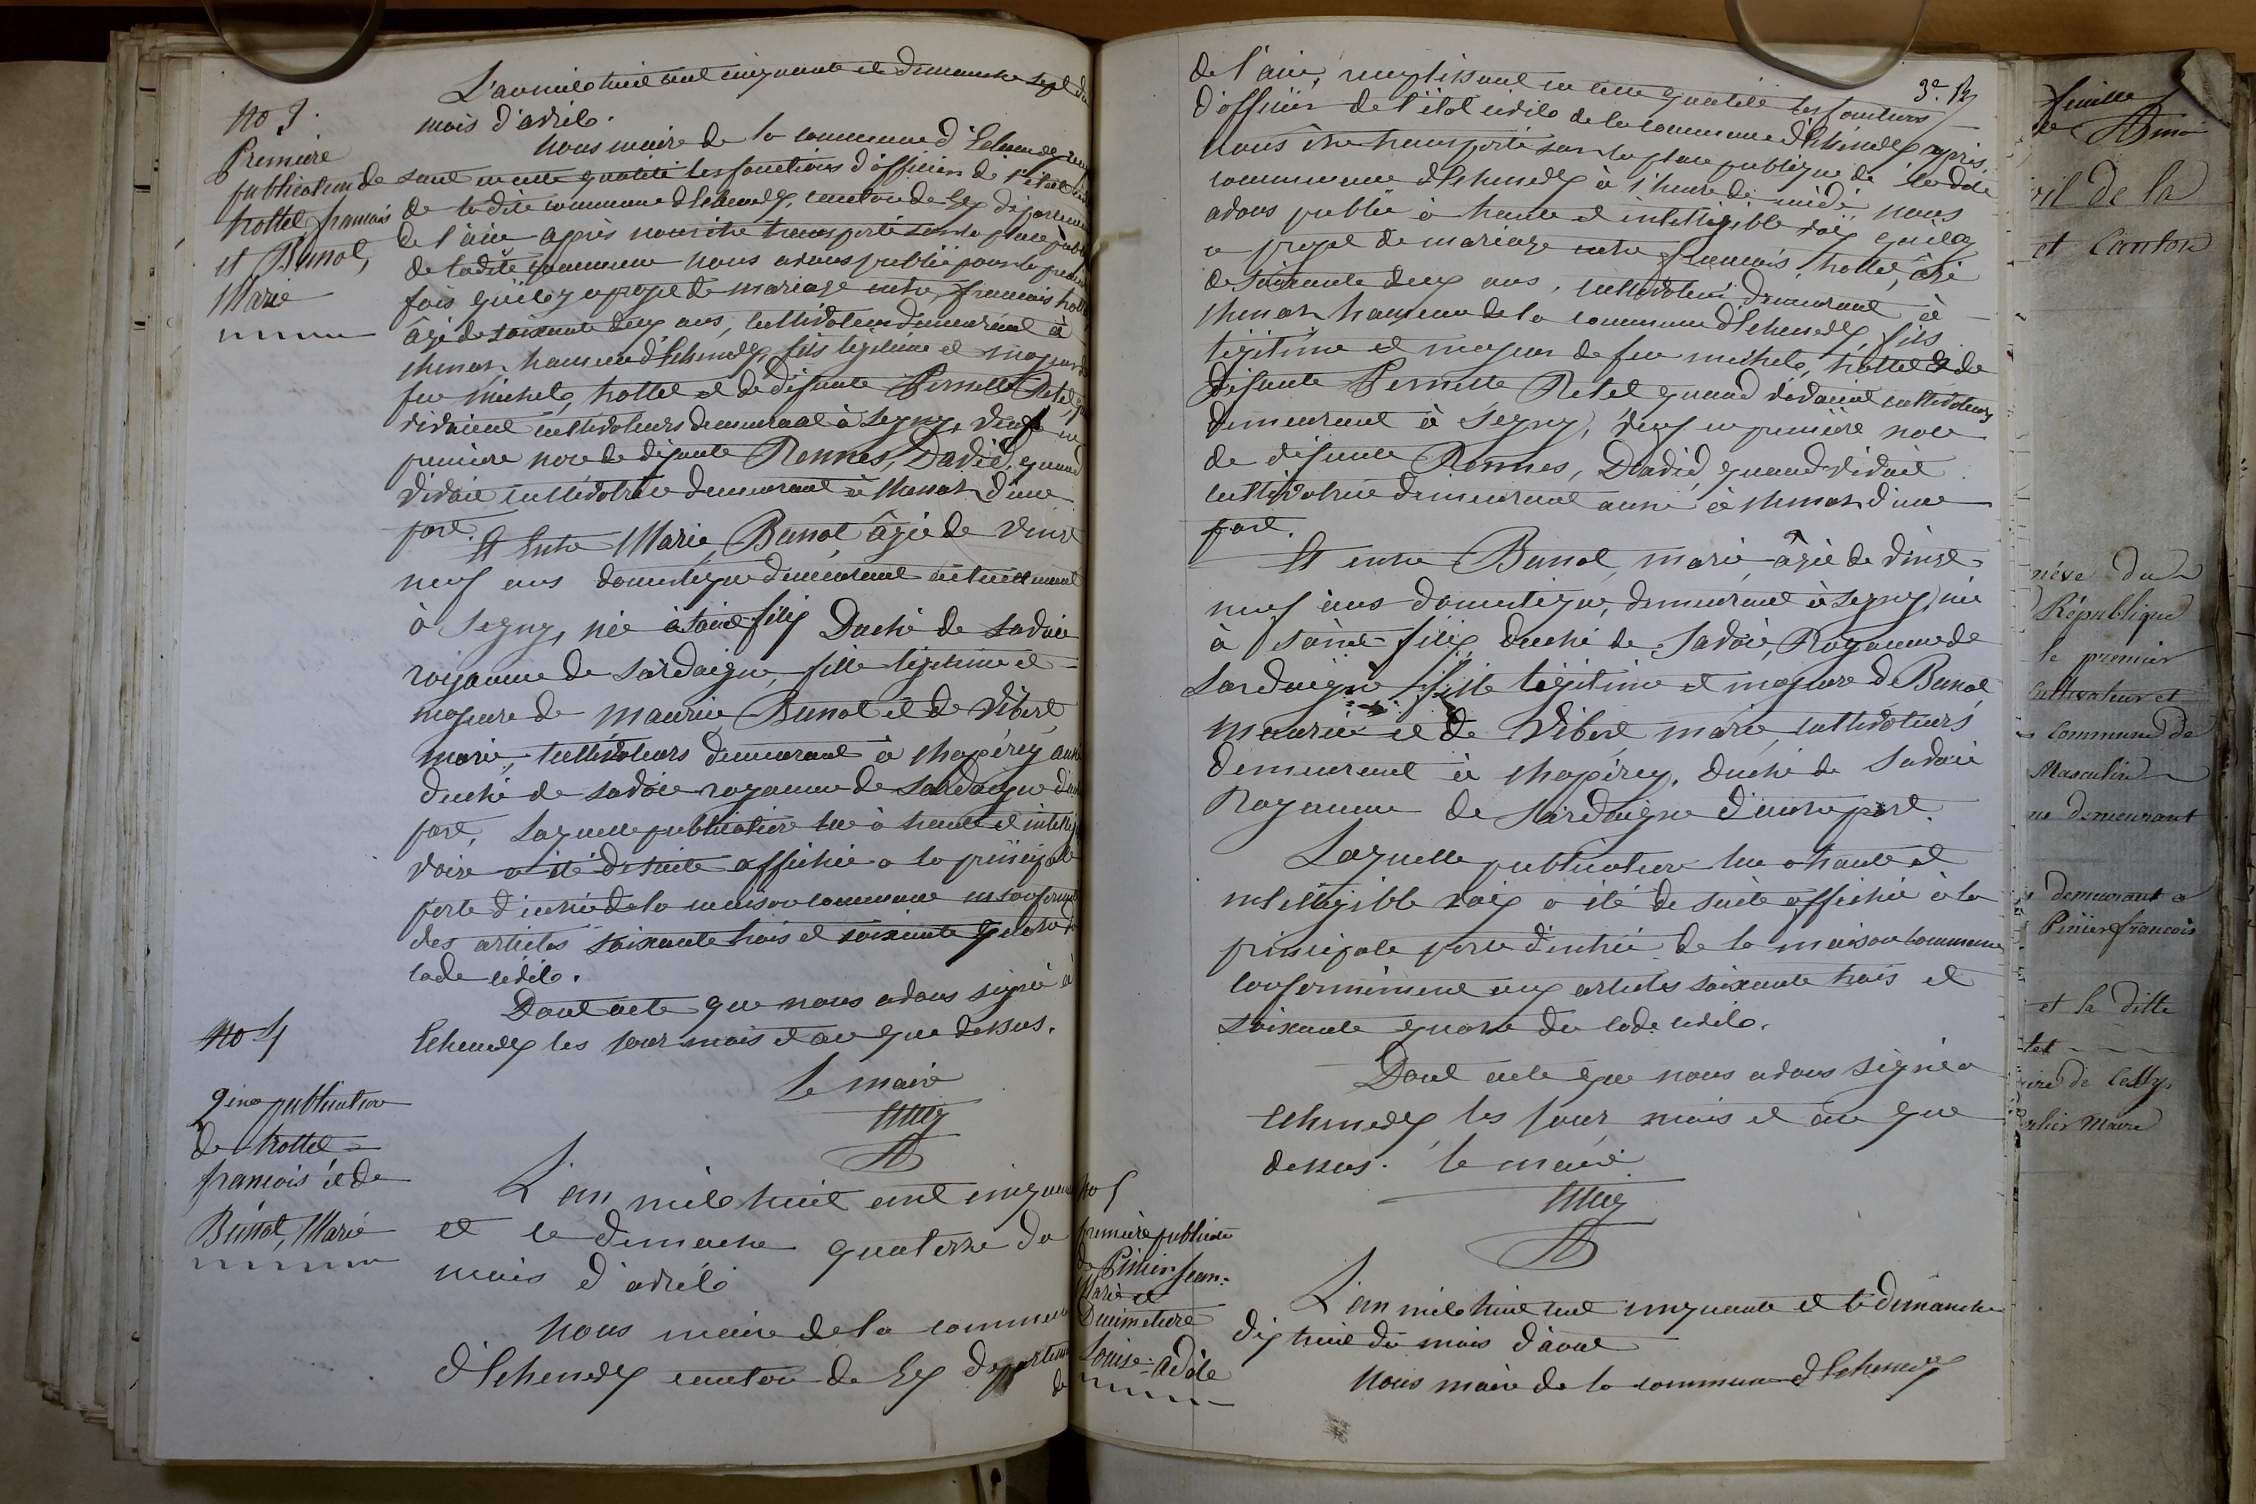 No 3.
Première
publication de
trottet françois
et Bunot,
Marie
L'an mile huit cent cinquante et dimanche sept du
mois d'avrile.
Nous maire de la commune d'Echenevex
sant en cette qualité les fonctions d'officier de l'état
de la dite commune d'Echenevex, canton de Gex
de l'ain après nous être transporté sur la place
de ladite commune nous avons publié pour la
fois qu'il y a projet de mariage entre françois
âgé de soixante deux ans, cultivateur demeurant à
chenas, hameau d'Echenevex, fils légitime et majeur
feu michele, trottet et de défunte Pernette Retel,
vivaient cultivateurs demeurant à Segny, veuf en
première noce de défunte Rennes, David, quand
vivait cultivatrice demeurant à chenas d'une
part.
Et Entre Marie, Bunot, âgée de vingt
neuf ans domestique demeurant actuellement
à Segny, née à saint félix Duché de Savoie
roiyaume de Sardaigne, fille légitime et
majeure de maurice Bunot et de Vibert
marie, cultivateurs demeurant à chapéry, aussi
duché de savoie royaume de Sardaigne
part, Laquelle publication lue à haute et
voix a été de suite affichée a la principale
porte d'entrée de la maison commune
des articles soixante trois et soixante quatre
code civile.
Dont acte que nous avons signé à
Echenevex les jour mois et an que dessus.
Le maire
No 4
2ème publication
de trottet
françois et de
Bunot, Marie
L'an mile huit cent
et le dimanche quatorze du
mois d'avrile
Nous maire de la commune
d'Echenevex canton de Gex
de
3e
de l'ain, remplissant en cette qualité les fonctions
d'officier de l'état civile de la commune d'Echenevex après
nous être transporté sur la place publique de la dite
commune d'Echenevex à l'heure de midi, nous
avons publié à haute et intelligible voix qu'il y
a projet de mariage entre françois, trottet, âgé
de soixante deux ans, cultivateur demeurant à
chenas hameau de la commune d'Echenevex, fils
légitime et majeur de feu michele, trottet et de
défunte Pernette Retel quand vivaient cultivateurs
demeurant à Segny, veuf en première noce
de défunte Rennes, David, quand vivait
cultivatrice demeurant aussi à chenas d'une
part.
Et entre Bunot, marie, âgée de vingt
neuf ans domestique, demeurant à Segny, née
à saint félix, duché de Savoie, Royaume de
Sardaigne fille légitime et majeure de Bunot
Maurice et de Vibert marie, cultivateurs
demeurant à chapéry, duché de Savoie
Royaume de Sardaigne d'autre part.
Laquelle publication lue a haute et
intelligible voix a été de suite affichée à la
principale porte d'entrée de la maison commune
conformément aux articles soixante trois et
soixante quatre du code civile.
Dont acte que nous avons signé a
Echenevex, les jour, mois et an que
dessus. le maire
No 5
première publication
de jean=
Marie et
Louise=Adèle
L'an mile huit cent cinquante et le dimanche
dix huit du mois d'aout
Nous maire de la commune d'Echenevex
feuille
de
de la
et Canton
du
République
le premier
Cultivateur et
commune de
Masculin
demeurant
demeurant a
françois
et la ditte
de Cessy
Maire